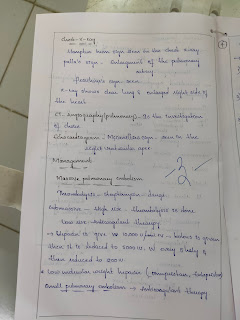 Chest-X-Ray
Hampton hump sign seen in the chest X-ray
palla's sign - Enlargement of the pulmonary
artery.
Fleischner sign seen
X-ray shows clear lung & enlarged right side of
the heart
CT-Angiography (pulmonary) - Is the investigation
of choice
Echocardiogram - McConnell's sign - seen in the
right ventricular apex
Management
Massive pulmonary embolism
Thrombolysis - streptokinase -
Submassive - High risk - thrombolysis is done
Low risk - Anticoagulant therapy
→ Heparin is given 10,000 is given
then it is reduced to 5000 IU every
then reduced to
Low molecular weight heparin (
Small pulmonary embolism → Anticoagulant therapy